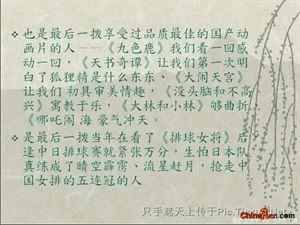 也是最后一拨享受过品质最佳的国产动
画片的人——《九色鹿》我们看一回感
动一回，《天书奇谭》让我们第一次明
白了狐狸精是什么东东、《大闹天宫》
让我们 初具审美情趣，《没头脑和不高
兴》寓教于乐，《大林和小林》够曲折
《哪吒闹 海 豪气冲天。
是最后一拨当年在看了《排球女将》后
逢中日排球赛就紧张万分，生怕日本队
真练成了晴空霹雳、流星赶月，抢走中
国女排的五连冠的人
只手遮天上传于